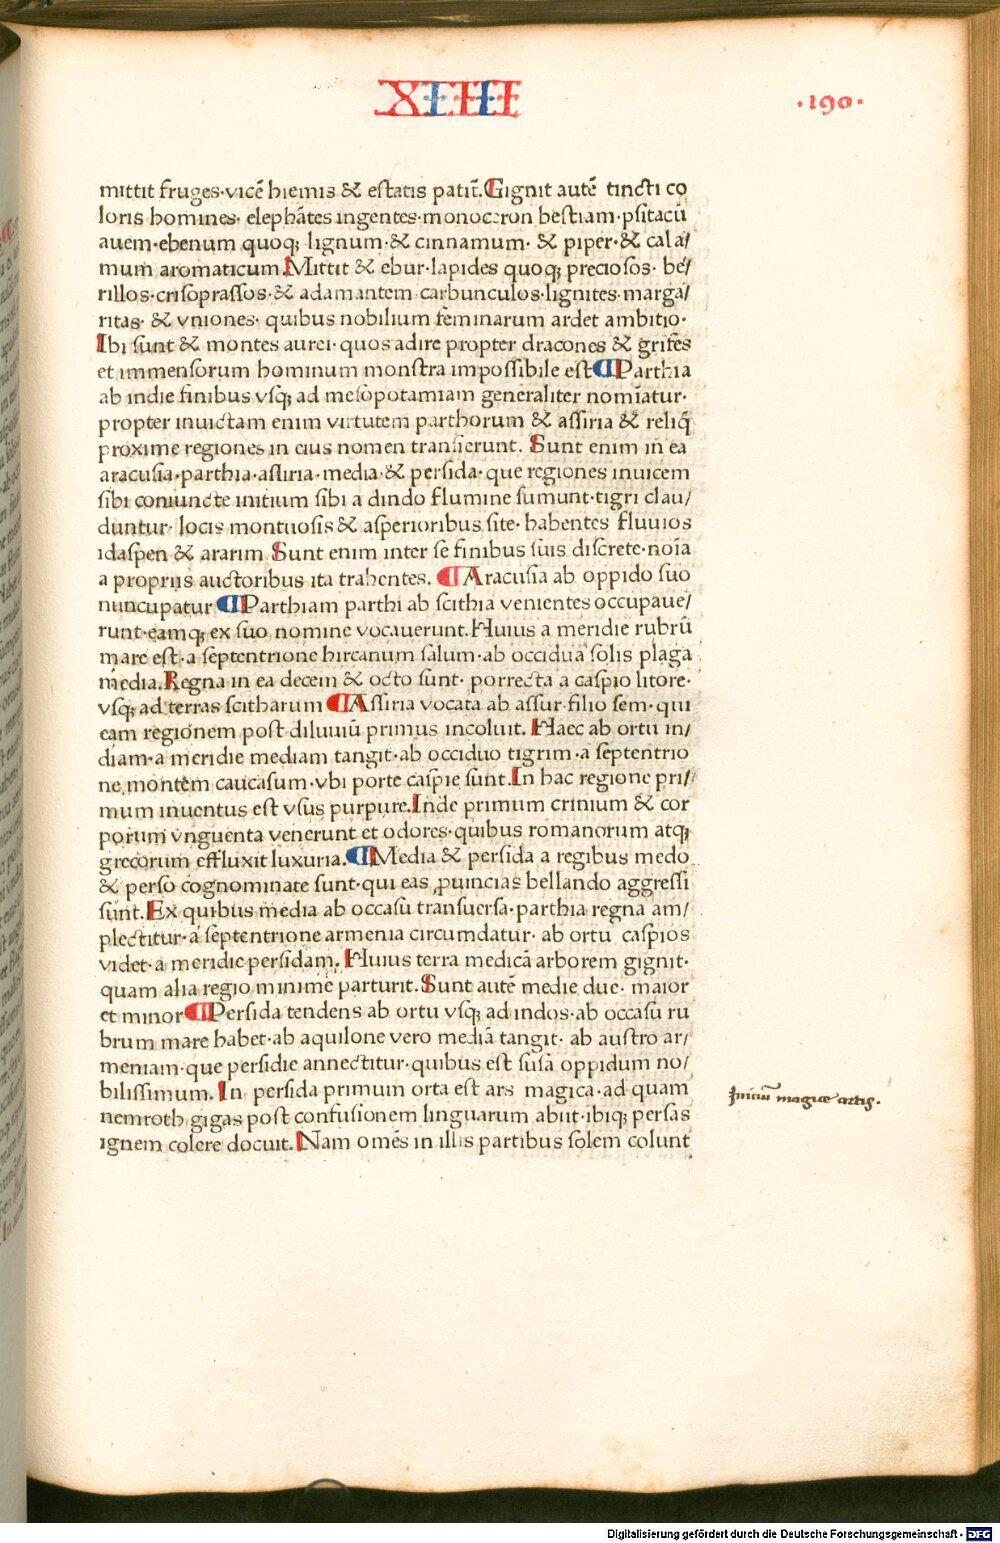 XIIII
·190·
mittit fruges·vicē hiemis & estatis patit̄. Gignit autē tincti co
loris homines· elephātes ingentes·monoceron bestiam·psitacū
auem·ebenum quoqꝫ lignum·& cinnamum· & piper·& cala/
mum aromaticum. Mittit & ebur·lapides quoqꝫ preciosos· be/
rillos·crisoprassos·& adamantem·carbunculos·lignites·marga/
ritas· & vniones· quibus nobilium feminarum ardet ambitio·
Ibi sunt & montes aurei·quos adire propter dracones & grifes
et immensorum hominum monstra impossibile est ¶ Parthia
ab indie finibus vsqꝫ ad mesopotamiam generaliter nomīatur·
propter inuictam enim virtutem parthorum & assiria & reliq̄
proxime regiones in eius nomen transierunt. Sunt enim in ea
aracusia·parthia·assiria·media·& persida·que regiones inuicem
sibi coniuncte initium sibi a dindo flumine sumunt·tigri clau/
duntur· locis montuosis & asperioribus site· habentes fluuios
idaspen & ararim Sunt enim inter se finibus suis discrete·noīa
a propriis auctoribus ita trahentes. ¶ Aracusia ab oppido suo
nuncupatur ¶ Parthiam parthi ab scithia venientes occupaue/
runt·eamqꝫ ex suo nomine vocauerunt. Huius a meridie rubrū
mare est·a septentrione hircanum salum·ab occidua solis plaga
media. Regna in ea decem & octo sunt· porrecta a caspio litore·
vsqꝫ ad terras scitharum ¶ Assiria vocata ab assur·filio sem·qui
eam regionem post diluuiū primus incoluit. Haec ab ortu in/
diam·a meridie mediam tangit·ab occiduo tigrim·a septentrio
ne montem caucasum·vbi porte caspie sunt. In hac regione pri/
mum inuentus est vsus purpure. Inde primum crinium & cor
porum vnguenta venerunt et odores·quibus romanorum atqꝫ
grecorum effluxit luxuria. ¶ Media & persida a regibus medo
& perso cognominate sunt·qui eas ꝓuincias bellando aggressi
sunt. Ex quibus media ab occasu transuersa·parthia regna am/
plectitur·a septentrione armenia circumdatur· ab ortu caspios
videt·a meridie persidam. Huius terra medicā arborem gignit·
quam alia regio minime parturit. Sunt autē medie due· maior
et minor ¶ Persida tendens ab ortu vsqꝫ ad indos·ab occasu ru
brum mare habet·ab aquilone vero mediā tangit· ab austro ar/
meniam·que persidie annectitur·quibus est susā oppidum no/
bilissimum. In persida primum orta est ars magica·ad quam
nemroth gigas post confusionem linguarum abiit·ibiqꝫ persas
ignem colere docuit. Nam omēs in illis partibus solem colunt
magice artis.
Digitalisierung gefördert durch die Deutsche Forschungsgemeinschaft - DFG